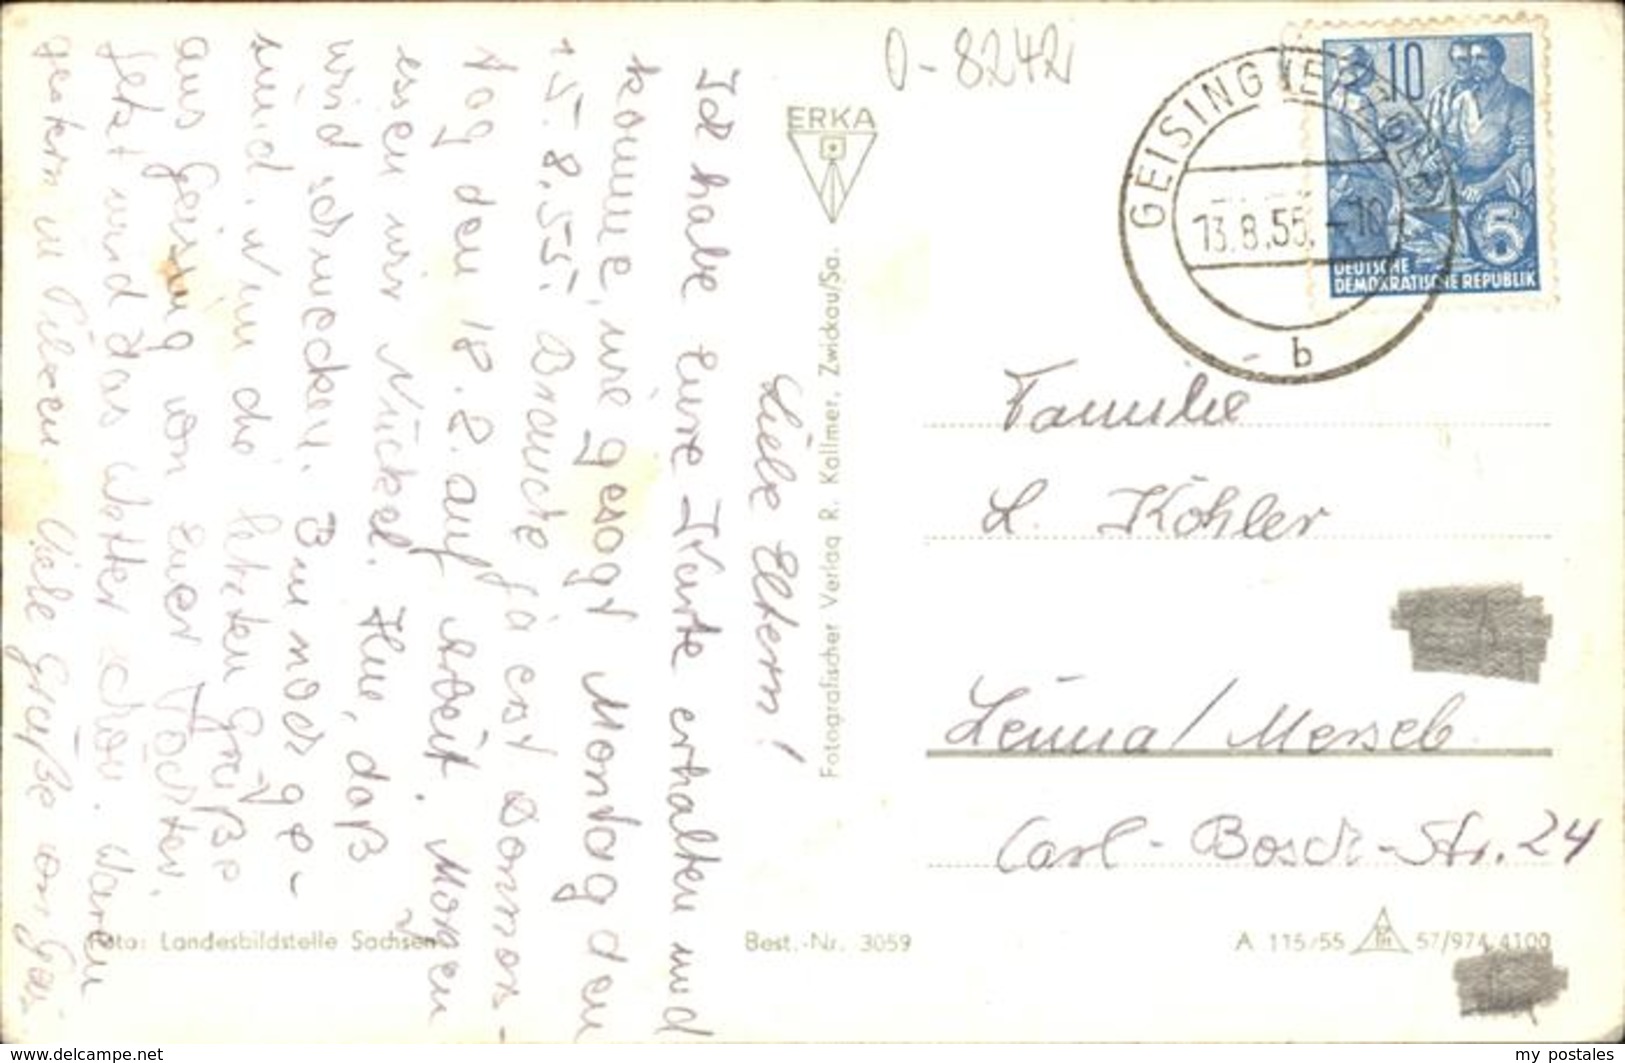 Liebe Eltern!
Ich habe Eure Karte erhalten und
komme, wie gesagt Montag den
15.8.55. Brauche ja erst Donners-
tag den 18.8. auf Arbeit. Morgen
essen wir Nickel. Hm, daß
wird schmecken.
sind. Nun die letzten Grüße
aus Geising von Euer Tochter.
Jetzt wird das Wetter schön. Waren
gestern in Viele Grüße von
Foto: Landesbildstelle Sachsen
Best.-Nr. 3059
ERKA
Fotografischer Verlag R. Kallmer, Zwickau/Sa.
0-8242
GEISING (ERZGEB)
13.8.55.-10
b
10
5
DEUTSCHE
DEMOKRATISCHE REPUBLIK
Familie
L. Köhler
Leuna / Merseb.
Carl-Bosch-Str. 24
A 115/55 57/974 4100
www.delcampe.net
my_postales